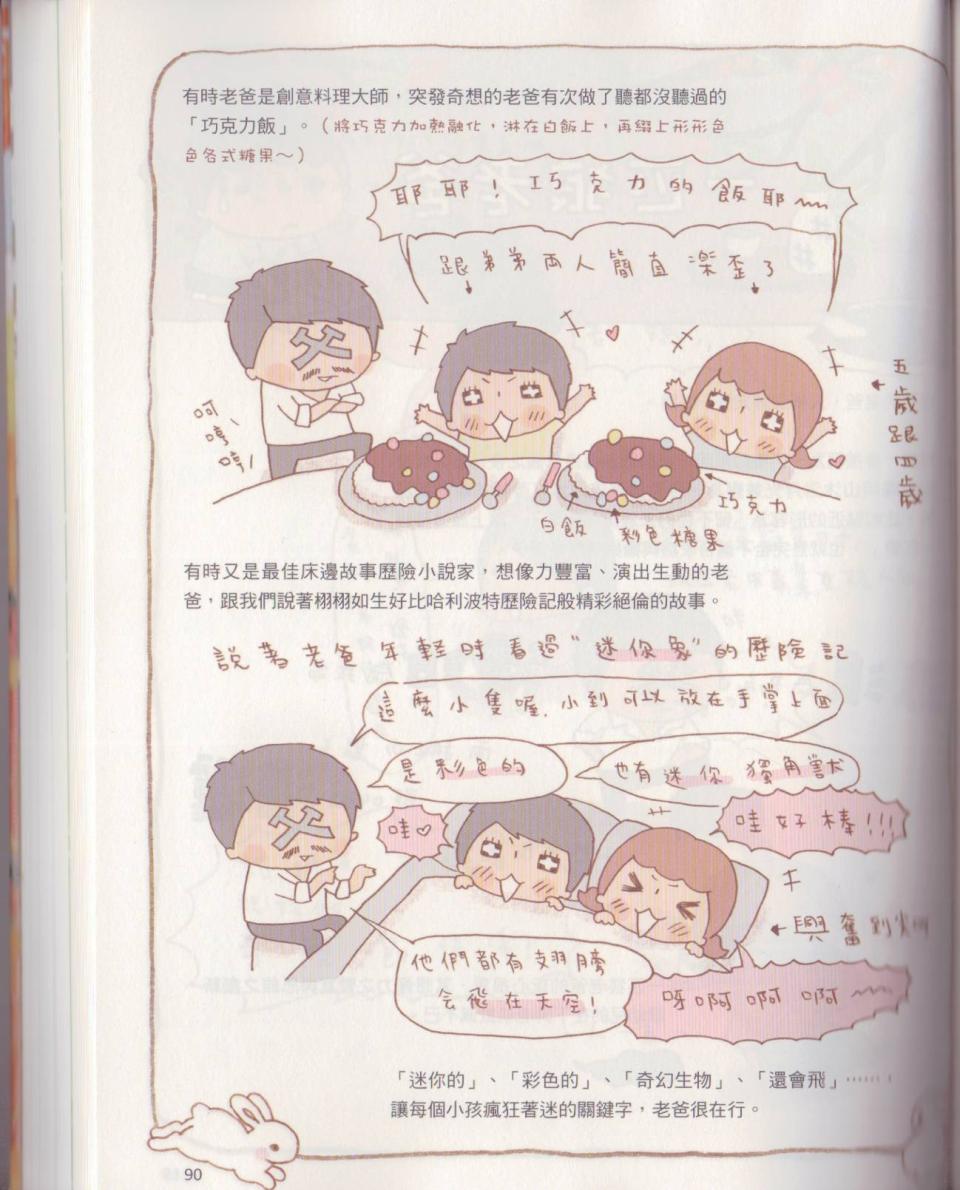 有時老爸是創意料理大師，突發奇想的老爸有次做了聽都沒聽過的
「巧克力飯」。（將巧克力加熱融化，淋在白飯上，再綴上形形色
色各式糖果～）
耶耶！巧克力的飯耶～
跟弟弟兩人簡直樂歪了
五歲跟四歲
呵
哼
哼
巧克力
白飯
彩色糖果
有時又是最佳床邊故事歷險小說家，想像力豐富、演出生動的老
爸，跟我們說著栩栩如生好比哈利波特歷險記般精彩絕倫的故事。
說著老爸年輕時看過"迷你象"的歷險記
這麼小隻喔，小到可以放在手掌上面
是彩色的
也有迷你獨角獸
哇♡
哇好棒!!!
興奮到尖叫
他們都有翅膀
会飛在天空!
呀啊啊啊～
「迷你的」、「彩色的」、「奇幻生物」、「還會飛」……！
讓每個小孩瘋狂著迷的關鍵字，老爸很在行。
90